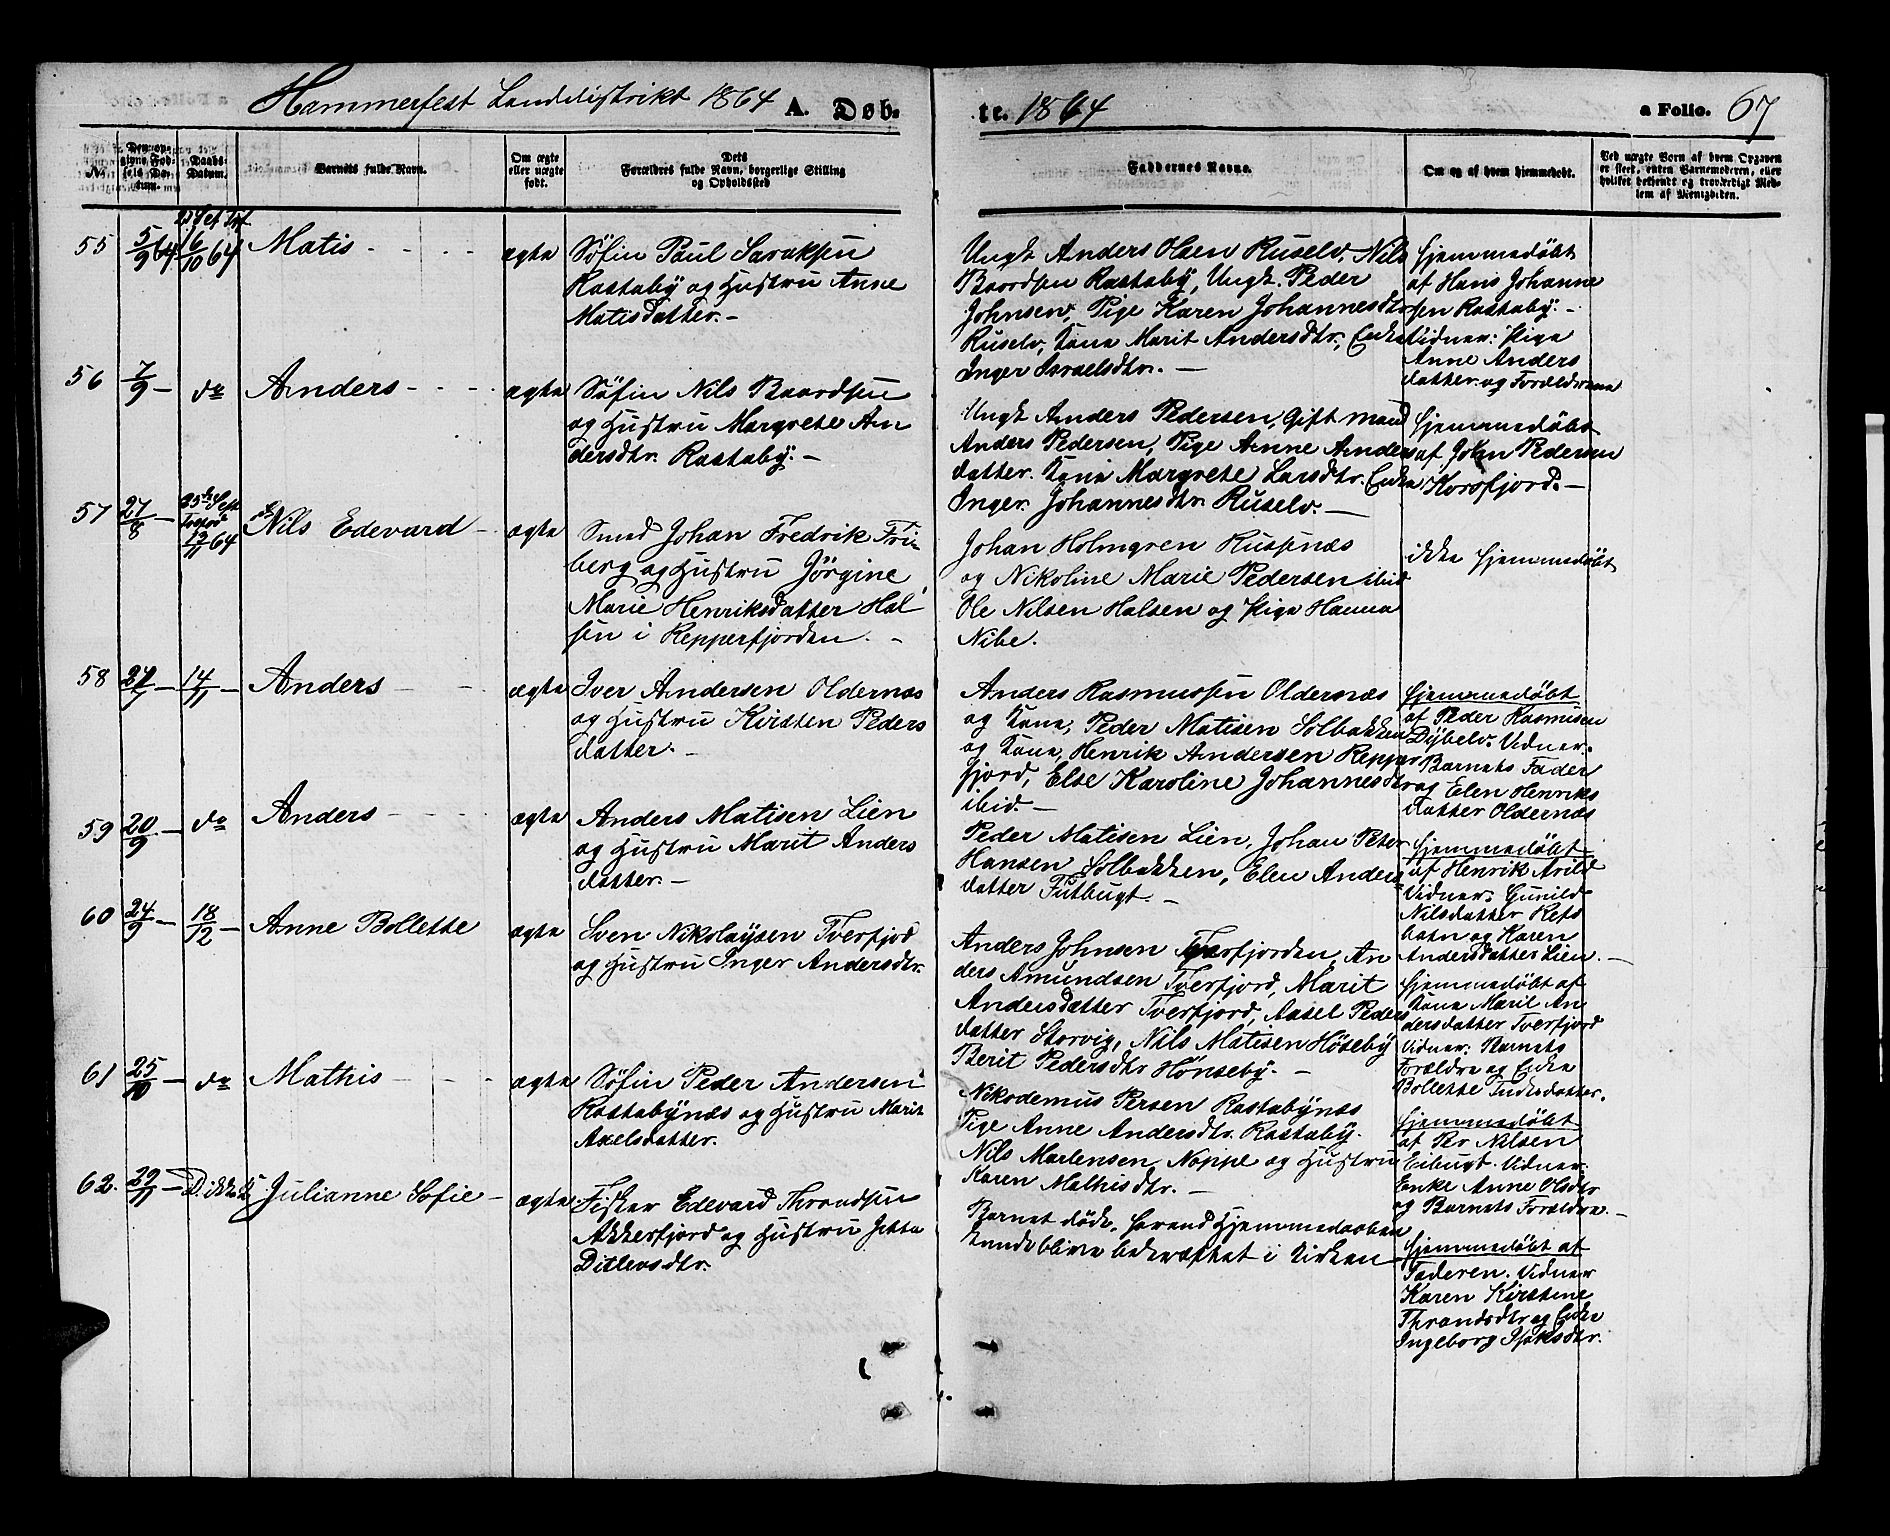 Hammerfest Landdistrikt 1864 A. Døb-
te. 1864 a Folio. 67
No. Den opgivne Fødsels Datum. Daabs-Datum. Barnets fulde Navn. Om ægte eller uægte født. Dets Forældres fulde Navn, borgerlige Stilling og Opholdssted
Faddernes Navne. Om og af hvem hjemmedøbt. Ved uægte Børn af hvem Opgaven er skeet, enten Barnemoderen, eller hvilket bekjendt og troværdigt Medlem af Menigheden.
55 5/9 64 16/10 64 Matis - - - - ægte Søfin Paul Saraksen
Rastaby og Hustru Anne
Matisdatter. -
Ungk Anders Olsen Ruselv, Nils
Baardsen Rastaby, Ungk. Peder
Johnsen, Pige Karen Johannesdtr
Ruselv, Kone Marit Andersdtr, Enke
Inger Israelsdtr. -
hjemmedøbt
af Hans Johanne
sen Rastaby. -
Vidner: Pige
Anne Anders
datter og Forældrene
56 7/9 - do Anders - - - - ægte Søfin Nils Baardsen
og Hustru Margrete An
dersdtr. Rastaby. -
Ungk Anders Pedersen, Gift Mand
Anders Pedersen, Pige Anne Anders
datter. Kone Margrete Larsdtr. Enke
Inger Johannesdtr. Ruselv. -
hjemmedøbt
af John Pedersen
Korsfjord. -
57 27/8 - 13/11 64 Nils Edevard - ægte Smed Johan Fredrik Fri-
berg og Hustru Jørgine
Marie Henriksdatter Hal
sen i Repperfjorden. -
Johan Holmgren Russenæs
og Nikoline Marie Pedersen ibid
Ole Nilsen Halsen og Pige Hanna
Nibe.
ikke hjemmedøbt
58 24/9 - 14/11 - Anders - - - ægte Iver Andersen Oldernæs
og Hustru Kirsten Peders
datter. -
Anders Rasmussen Oldernæs
og Kone, Peder Matisen Solbakken
og Kone, Henrik Andersen Repper
fjord, Else Karoline Johannesdtr
ibid. -
hjemmedøbt
af Peder Rasmusen
Dybelv. Vidner.
Barnets Fader
og Elen Henriks
datter Oldernæs
59 20/9 - do Anders - - - - ægte Anders Matisen Lien
og Hustru Marit Anders
datter. -
Peder Matisen Lien, Johan Peter
Hansen Solbakken, Elen Anders
datter Futbugt. -
hjemmedøbt
af Henrik Arild
Vidner: Gunild
Nilsdatter Kefs
batn og Karen
Andersdatter Lien. -
60 24/9 - 18/12 - Anne Bollette ægte Sven Nikolaysen Tverfjord
og Hustru Inger Andersdtr.
Anders Johnsen Tverfjorden, An
ders Amundsen Tverfjord, Marit
Andersdatter Tverfjord, Aasel Peders
datter Storvig, Nils Matisen Hønseby
Berit Pedersdtr Hønseby. -
hjemmedøbt af
Kone Marit An
dersdatter Tverfjord
Vidner: Barnets
Forældre og Enke
Bollette datter.
61 25/10 - do Mathis - - - ægte Søfin Peder Andersen
Rastabynæs og Hustru Marit
Axelsdatter.
Nikodemus Persen Rastabynæs
Pige Anne Andersdtr. Rastaby.
Nils Mortensen Noppe og Hustru
Karen Mathisdtr. -
hjemmedøbt
af Per Nilsen
Eibugt. Vidner:
Enke Anne Olsdtr
og Barnets Forældre. -
62. 29/11 - Julianne Sofie - ægte Fisker Edevard Thrandsen
Akkerfjord og Hustru Jetta
Ditlevsdtr.
Barnet døde, førend Hjemmedaaben
kunde blive bekræftet i Kirken -
hjemmedøbt af
Faderen. Vidner
Karen Kirstine
Thrandsdtr og Enke
Ingeborg Isaksdtr.